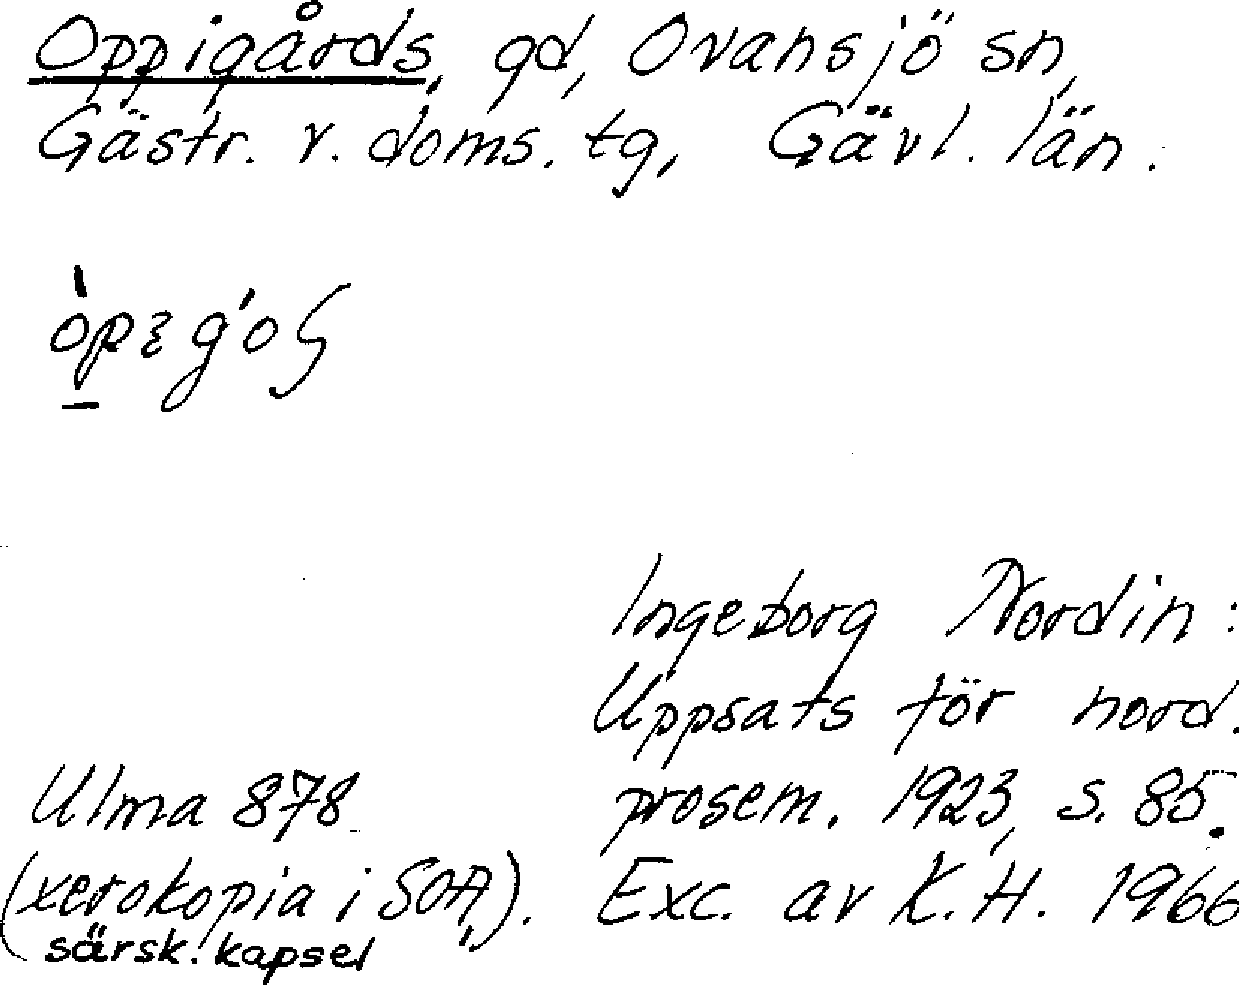 Oppigårds, gd, Ovansjö sn,
Gästr. v. doms. tg, Gävl. län.
Ingeborg Nordin:
Uppsats för nord.
Ulma 878 prosem. 1923, s. 85.
(xerokopia i SOA,). Exc. av K.H. 1966
särsk. kapsel